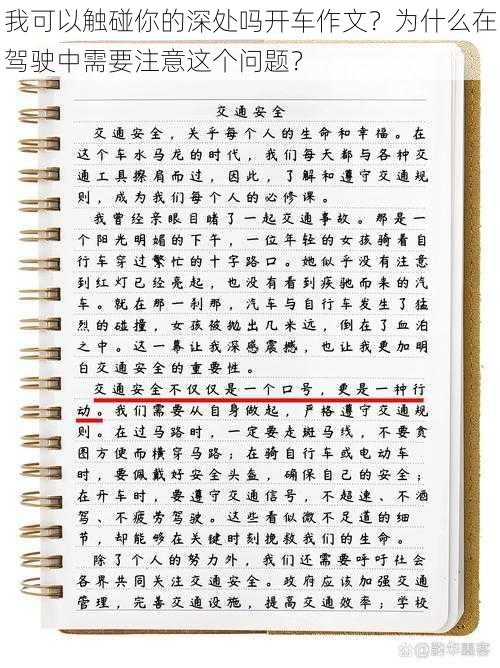 我可以触碰你的深处吗开车作文？为什么在
驾驶中需要注意这个问题？
交通安全
交通安全，关乎每个人的生命和幸福。在
这个车水马龙的时代，我们每天都与各种交
通工具擦肩而过，因此，了解和遵守交通规
则，成为我们每个人的必修课。
我曾经亲眼目睹了一起交通事故。那是一
个阳光明媚的下午，一位年轻的女孩骑着自
行车穿过繁忙的十字路口。她似乎没有注意
到红灯已经亮起，也没有看到疾驰而来的汽
车。就在那一刹那，汽车与自行车发生了猛
烈的碰撞，女孩被抛出几米远，倒在了血泊
之中。这一幕让我深感震撼，也让我更加明
白交通安全的重要性。
交通安全不仅仅是一个口号，更是一种行
动。我们需要从自身做起，严格遵守交通规
则。在过马路时，一定要走斑马线，不要贪
图方便而横穿马路；在骑自行车或电动车
时，要佩戴好安全头盔，确保自己的安全；
在开车时，要遵守交通信号，不超速、不酒
驾、不疲劳驾驶。这些看似微不足道的细
节，却能够在关键时刻挽救我们的生命。
除了个人的努力外，我们还需要呼吁社会
各界共同关注交通安全。政府应该加强交通
管理，完善交通设施，提高交通效率；学校